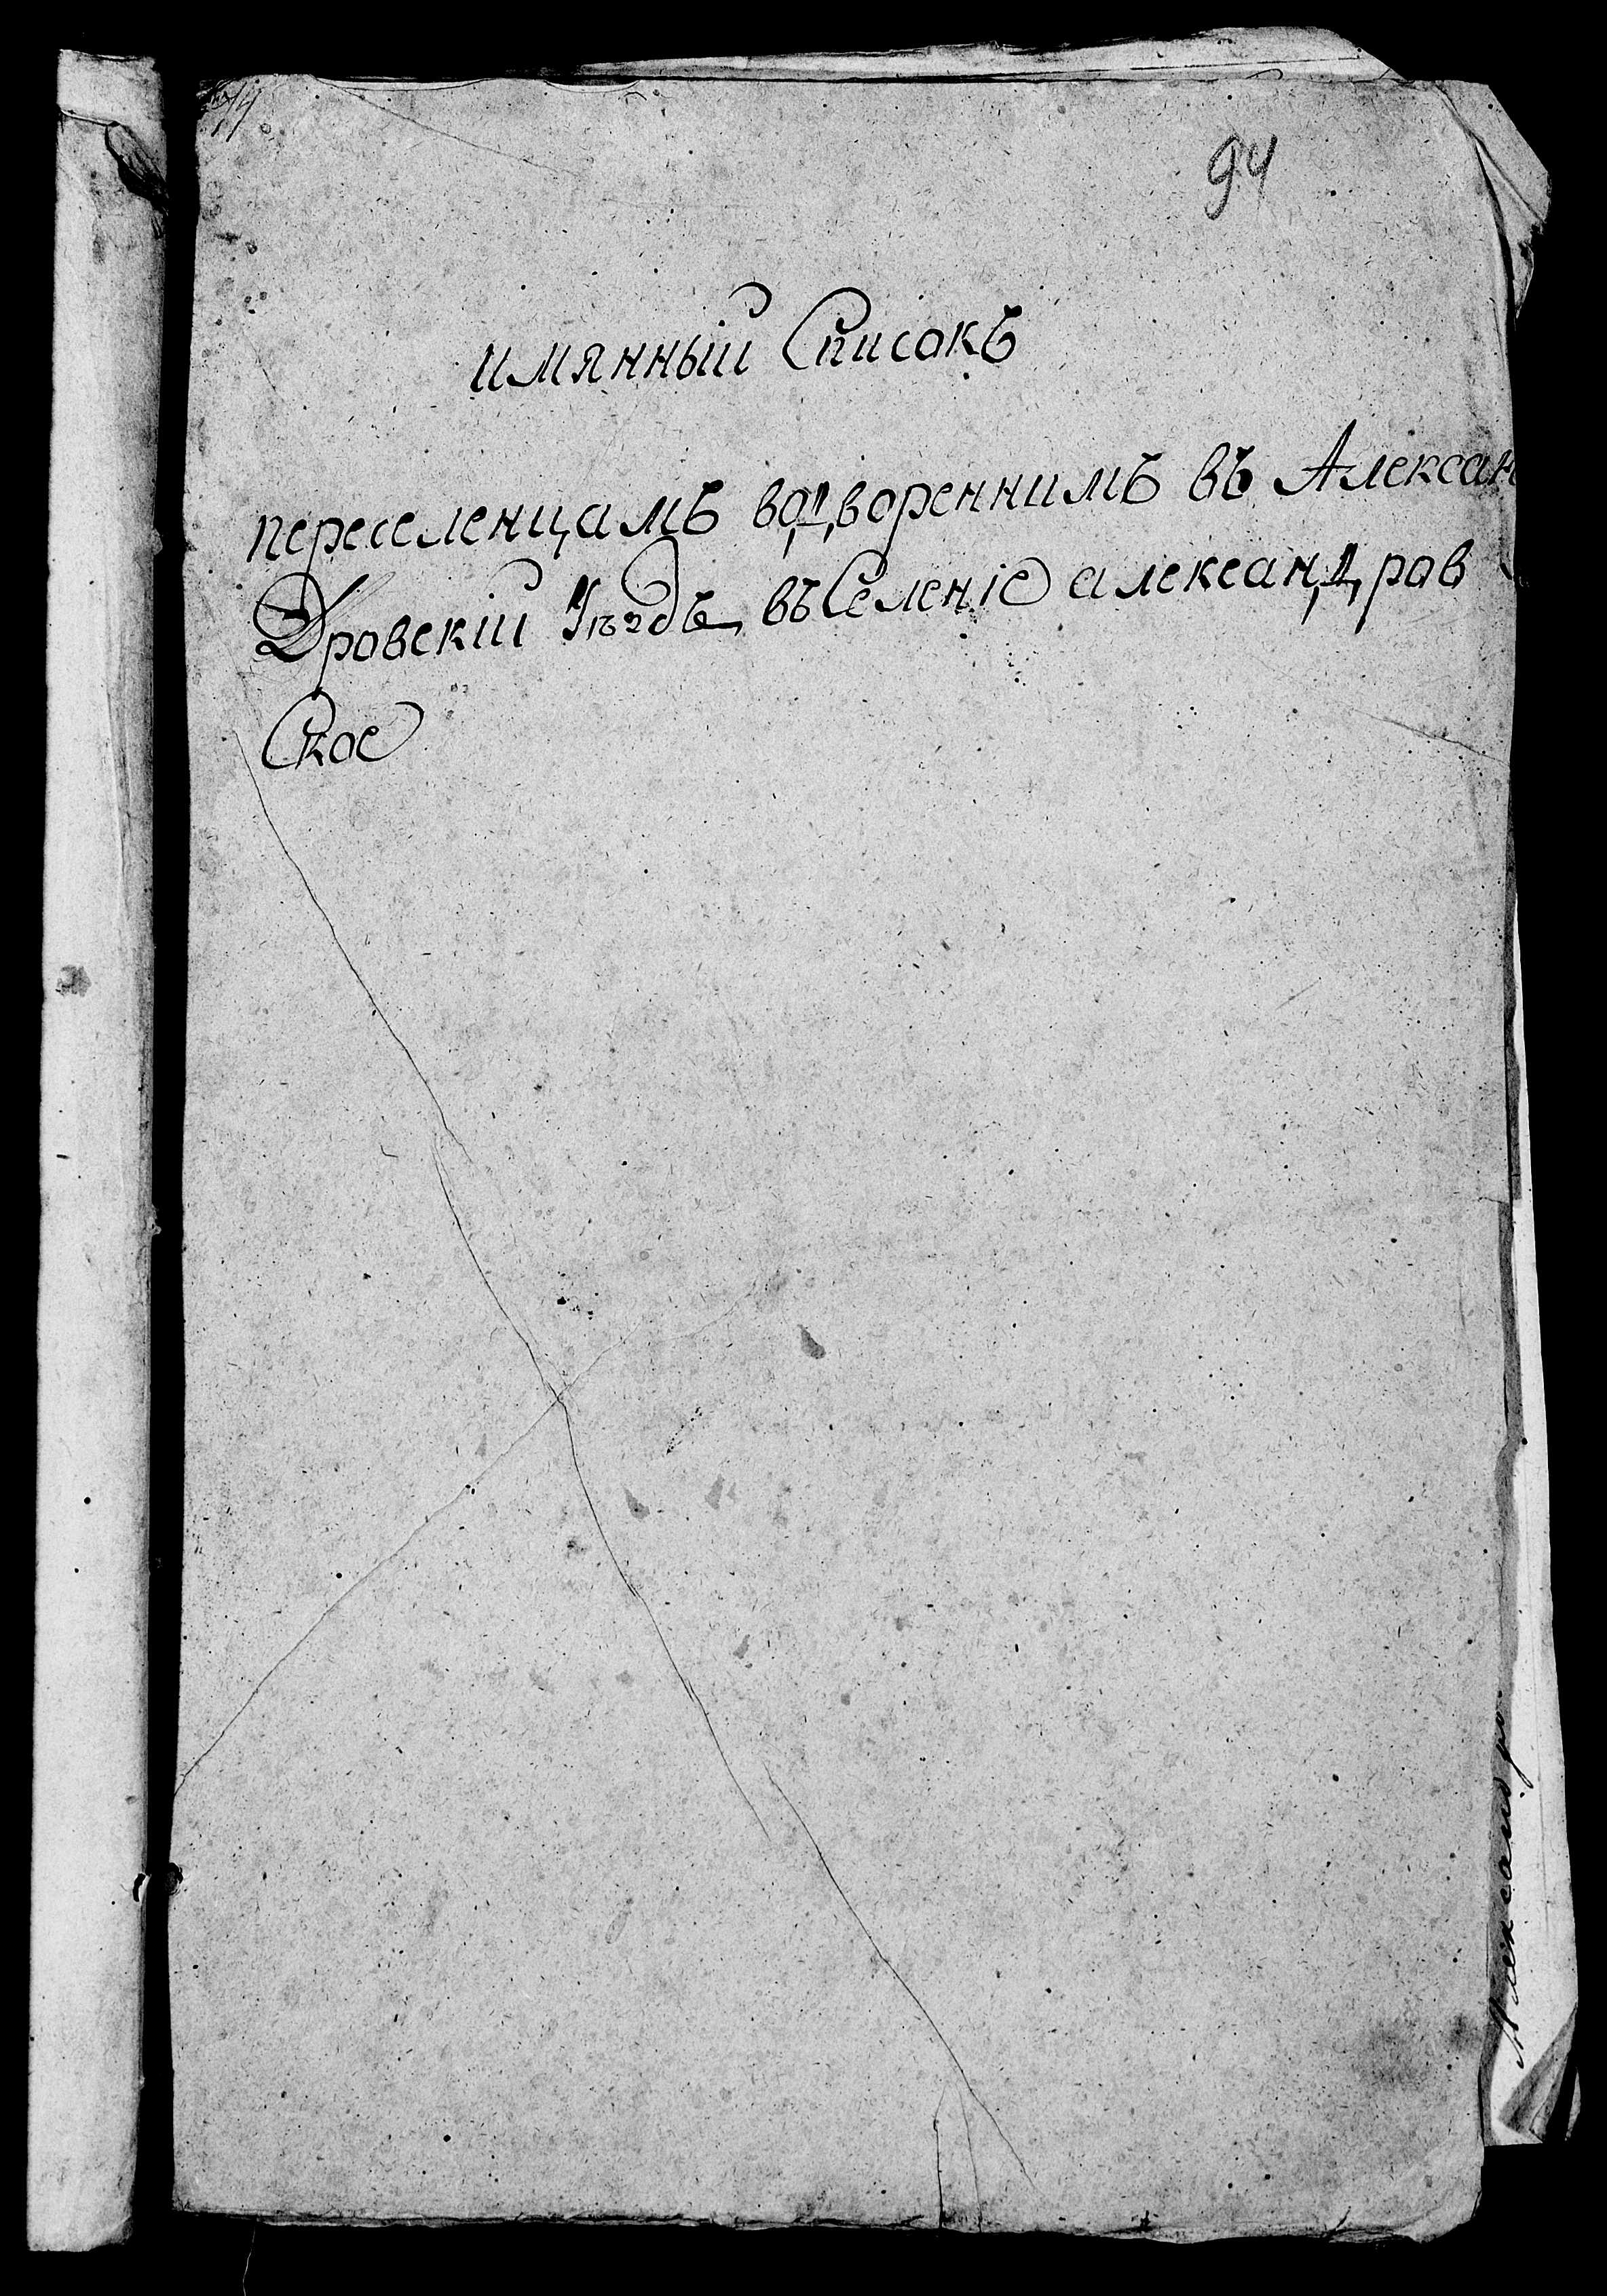 94
имянный Списокъ
переселенцамъ водвореннимъ въ Алексан
Дровскій Уѣздъ въ Селеніе александров
Ское
Александро